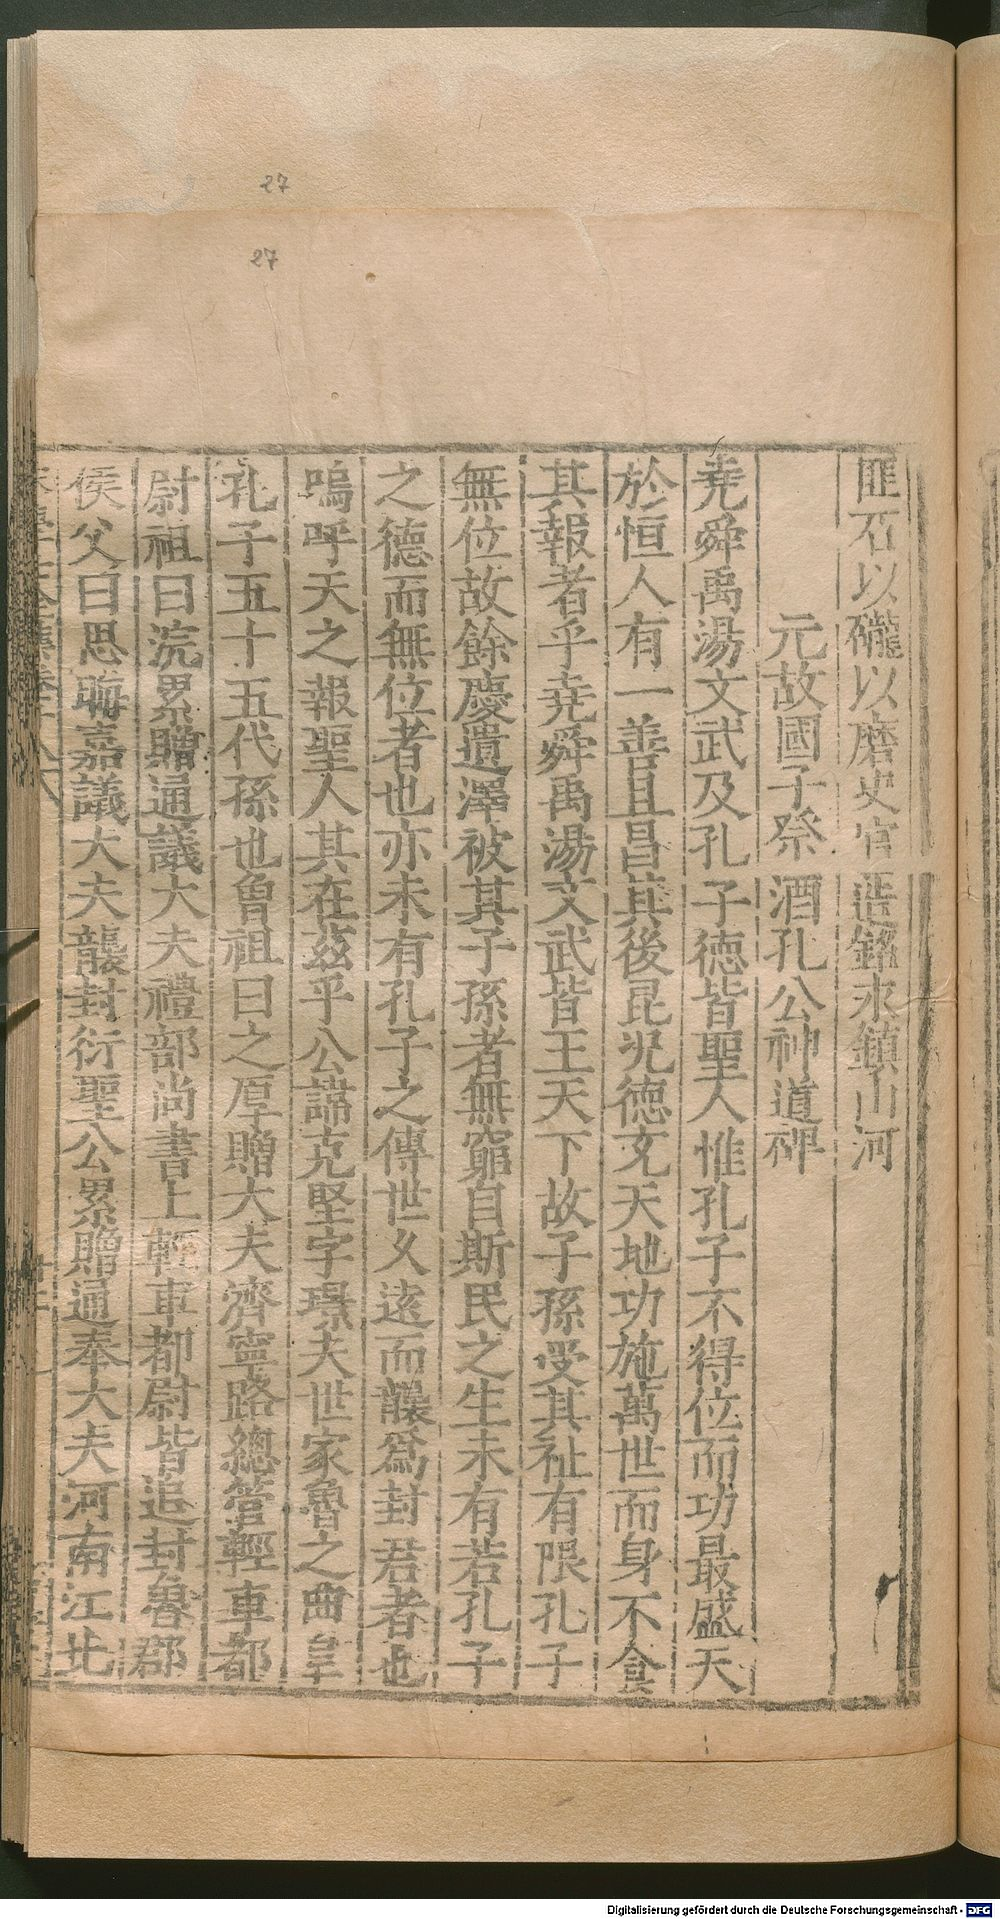 27
27
匪石以礲以磨史官造銘永鎮山河
元故國子祭酒孔公神道碑
堯舜禹湯文武及孔子德皆聖人惟孔子不得位而功最盛天
於恒人有一善且昌其後昆況德充天地功施萬世而身不食
其報者乎堯舜禹湯文武皆王天下故子孫受其祉有限孔子
無位故餘慶遺澤被其子孫者無窮自斯民之生未有若孔子
之德而無位者也亦未有孔子之傳世久遠而襲爲封君者也
嗚呼天之報聖人其在茲乎公諱克堅字璟夫世家魯之曲阜
孔子五十五代孫也魯祖曰之厚贈大夫濟寧路總管輕車都
尉祖曰浣累贈通議大夫禮部尚書上輕車都尉皆追封魯郡
侯父曰思晦嘉議大夫襲封衍聖公累贈通奉大夫河南江北
Digitalisierung gefördert durch die Deutsche Forschungsgemeinschaft - DFG